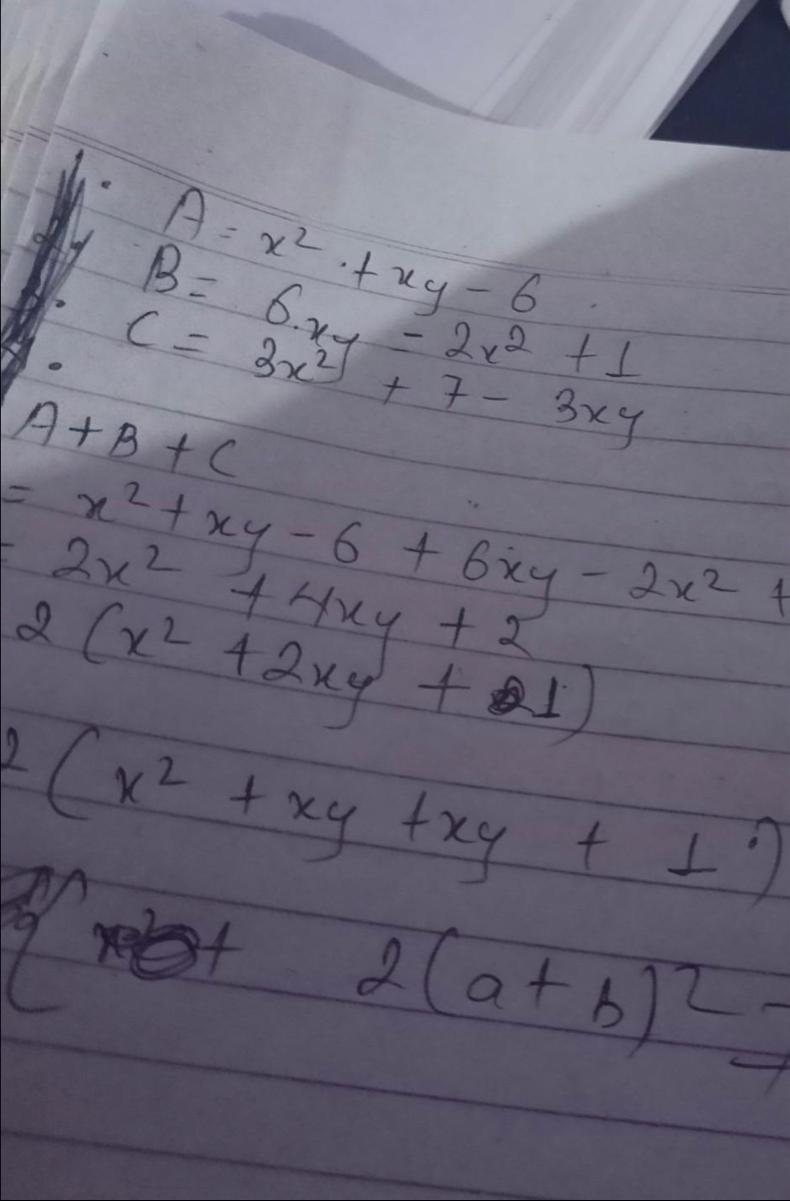 A = x² + xy - 6
B = 6.xy - 2x² + 1
C = 3x² + 7 - 3xy
A + B + C
= x² + xy - 6 + 6xy - 2x² +
= 2x² + 4xy + 2
2 (x² + 2xy + 1)
2 (x² + xy + xy + 1)
2(a + b)² -